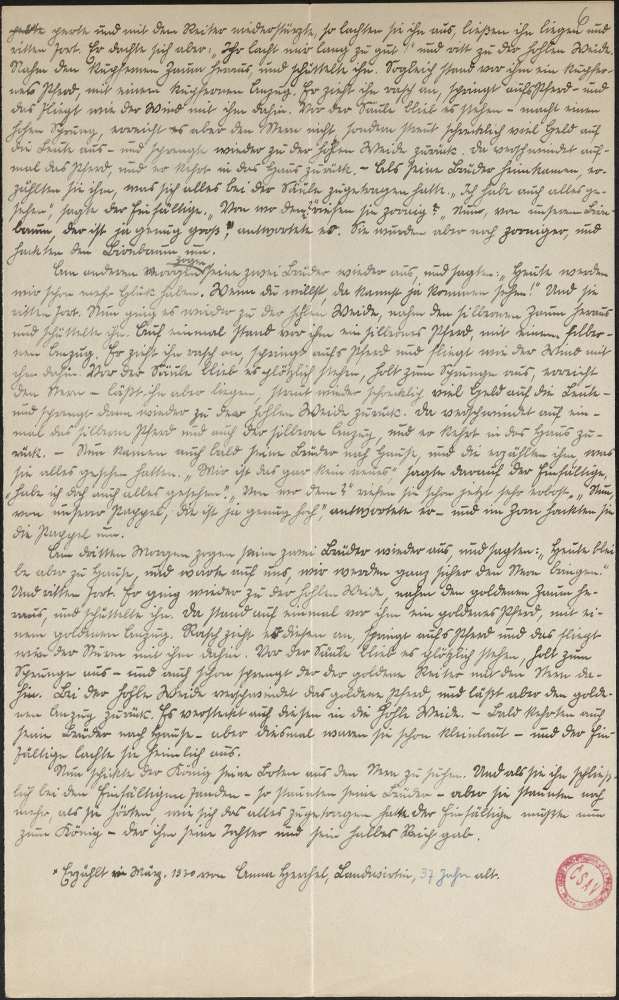 perte und mit dem Reiter niederstürzte, so lachten sie ihn aus, ließen ihn liegen und
ritten fort. Er dachte sich aber: „Ihr lacht mir lang zu gut!" und ritt zu der hohlen Weide.
Nahm den kupfernen Zaum heraus, und schüttelte ihn. Sogleich stand vor ihm ein kupfer-
nes Pferd, mit einem kupfernen Anzug. Er zieht ihn rasch an, springt aufs Pferd – und
das fliegt wie der Wind mit ihm dahin. Vor der Säule blieb es stehen – macht einen
hohen Sprung, erreicht es aber den Stern nicht, sondern streut schrecklich viel Geld auf
die Leute aus – und sprengte wieder zu der hohlen Weide zurück. Da verschwindet auf-
mal das Pferd, und er kehrt in das Haus zurück. – Als seine Brüder heimkamen, er-
zählten sie ihm, was sich alles bei der Säule zugetragen hatte. „Ich habe auch alles ge-
sehen", sagte der Einfältige. „Von wo denn?" riefen sie zornig? „Nun, von unserem Birn-
baum, der ist ja genug groß", antwortete er. Sie wurden aber noch zorniger, und
hackten den Birnbaum um.
Am anderen Morgen zogen seine zwei Brüder wieder aus, und sagten: „Heute werden
wir schon mehr Glück haben. Wenn du willst, da kannst ja kommen sehen!" Und sie
ritten fort. Nun ging es wieder zu der hohlen Weide, nahm den silbernen Zaum heraus
und schüttelte ihn. Auf einmal stand vor ihm ein silbernes Pferd, mit einem silber-
nen Anzug. Er zieht ihn rasch an, springt aufs Pferd und fliegt wie der Wind mit
ihm dahin. Vor der Säule blieb es plötzlich stehen, holt zum Sprunge aus, erreicht
den Stern – läßt ihn aber liegen, streut wieder schrecklich viel Geld auf die Leute –
und sprengt dann wieder zu der hohlen Weide zurück. Da verschwindet auf ein-
mal das silberne Pferd und auch der silberne Anzug, und er kehrt in das Haus zu-
rück. – Nun kamen auch bald seine Brüder nach Hause, und die erzählten ihm was
sie alles gesehen hatten. „Mir ist das gar kein neues" sagte darauf der Einfältige,
„habe ich doch auch alles gesehen". „Von wo denn?" riefen sie schon jetzt sehr erbost. „Nun,
von unserer Pappel, die ist ja genug hoch", antwortete er – und im Zorn hackten sie
die Pappel um.
Am dritten Morgen zogen seine zwei Brüder wieder aus, und sagten: „Heute blei-
be aber zu Hause, und warte auf uns, wir werden ganz sicher den Stern bringen."
Und ritten fort. Er ging wieder zu der hohlen Weide, nahm den goldenen Zaum he-
raus, und schüttelte ihn. Da stand auf einmal vor ihm ein goldenes Pferd, mit ei-
nem goldenen Anzug. Rasch zieht er diesen an, springt aufs Pferd und das fliegt
wie der Sturm mit ihm dahin. Vor der Säule blieb es plötzlich stehen, holt zum
Sprunge aus – und auch schon sprengt der der goldene Reiter mit dem Stern da-
hin. Bei der hohle Weide verschwindet das goldene Pferd, und läßt aber den golde-
nen Anzug zurück. Er versteckt auch diesen in die hohle Weide. – Bald kehrten auch
seine Brüder nach Hause – aber diesmal waren sie schon kleinlaut – und der Ein-
fältige lachte sie heimlich aus.
Nun schickte der König seine Boten aus den Stern zu suchen. Und als sie ihn schließ-
lich bei dem Einfältigen fanden – so staunten seine Brüder – aber sie staunten noch
mehr, als sie hörten, wie sich das alles zugetragen hatte. Der Einfältige mußte nun
zum König – der ihm seine Tochter und sein halbes Reich gab.
* Erzählt im März 1930 von Anna Herchel, Landwirtin, 37 Jahre alt.
ČSAV